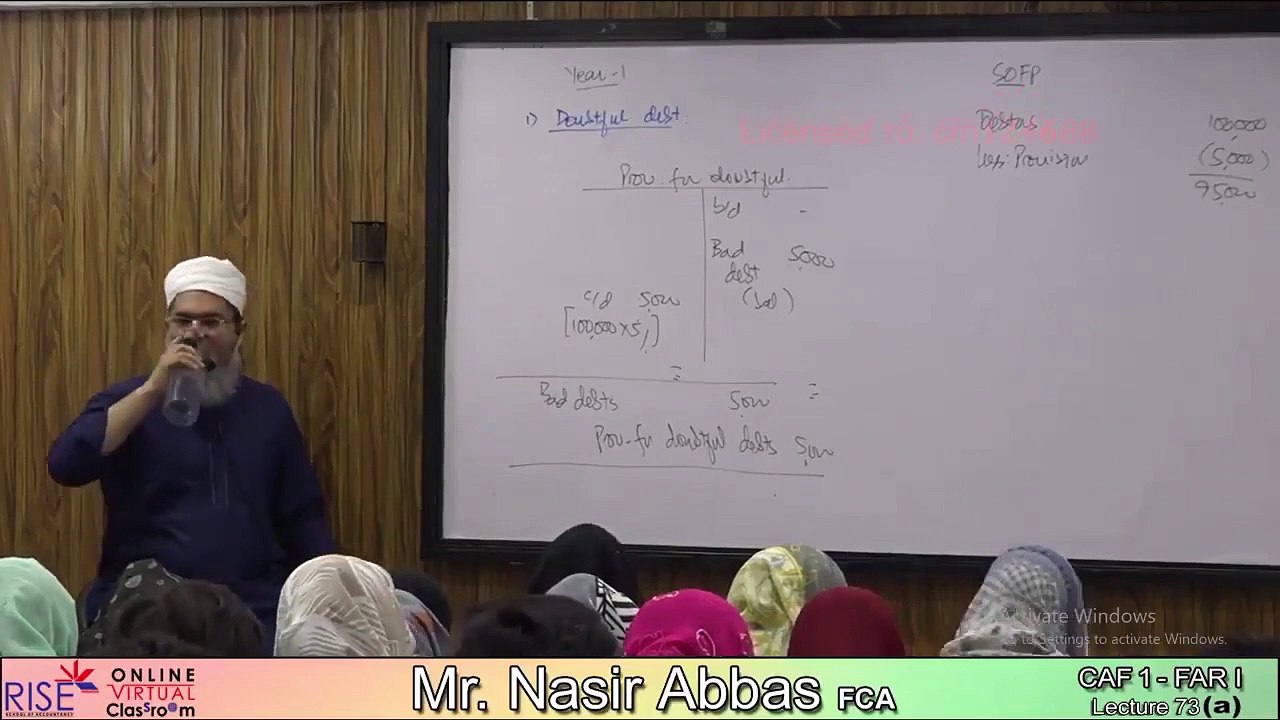 Year-1
1) Doubtful debt.
Prov. for doubtful.
b/d -
Bad 5000
debt
(bal)
c/d 5000
[100,000x5%]
=
=
Bad debts 5000
Prov-for doubtful debts 5000
SOFP
Debtors 100,000
Less: Provision (5,000)
95000
Licensed to:
Activate Windows
to Settings to activate Windows.
RISE
SCHOOL OF ACCOUNTANCY
ONLINE
VIRTUAL
ClasSro@m
Mr. Nasir Abbas FCA
CAF 1 - FAR I
Lecture 73 (a)